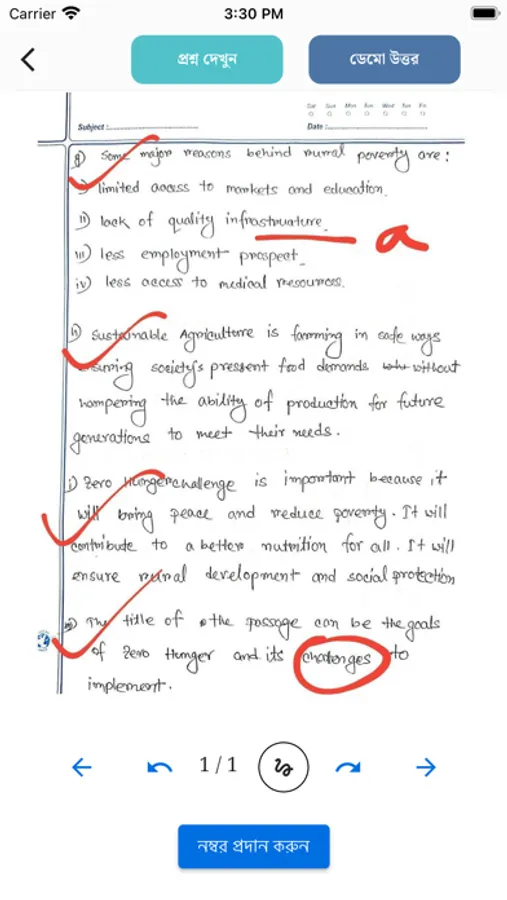 Carrier 3:30 PM
প্রশ্ন দেখুন ডেমো উত্তর
Sat Sun Mon Tue Wed Tue Fri
Subject : Date :
Some major reasons behind rural poverty are :
i) limited access to markets and education.
ii) lack of quality infrastructure.
a
iii) less employment prospect.
iv) less access to medical resources.
h) Sustainable Agriculture is farming in safe ways
ensuring society's pressent food demands without
hampering the ability of production for future
generations to meet their needs.
i) Zero Hunger challenge is important because it
will bring peace and reduce poverty. It will
contribute to a better nutrition for all. It will
ensure rural development and social protection
The title of the passage can be the goals
of Zero Hunger and its challenges to
implement.
1 / 1
নম্বর প্রদান করুন